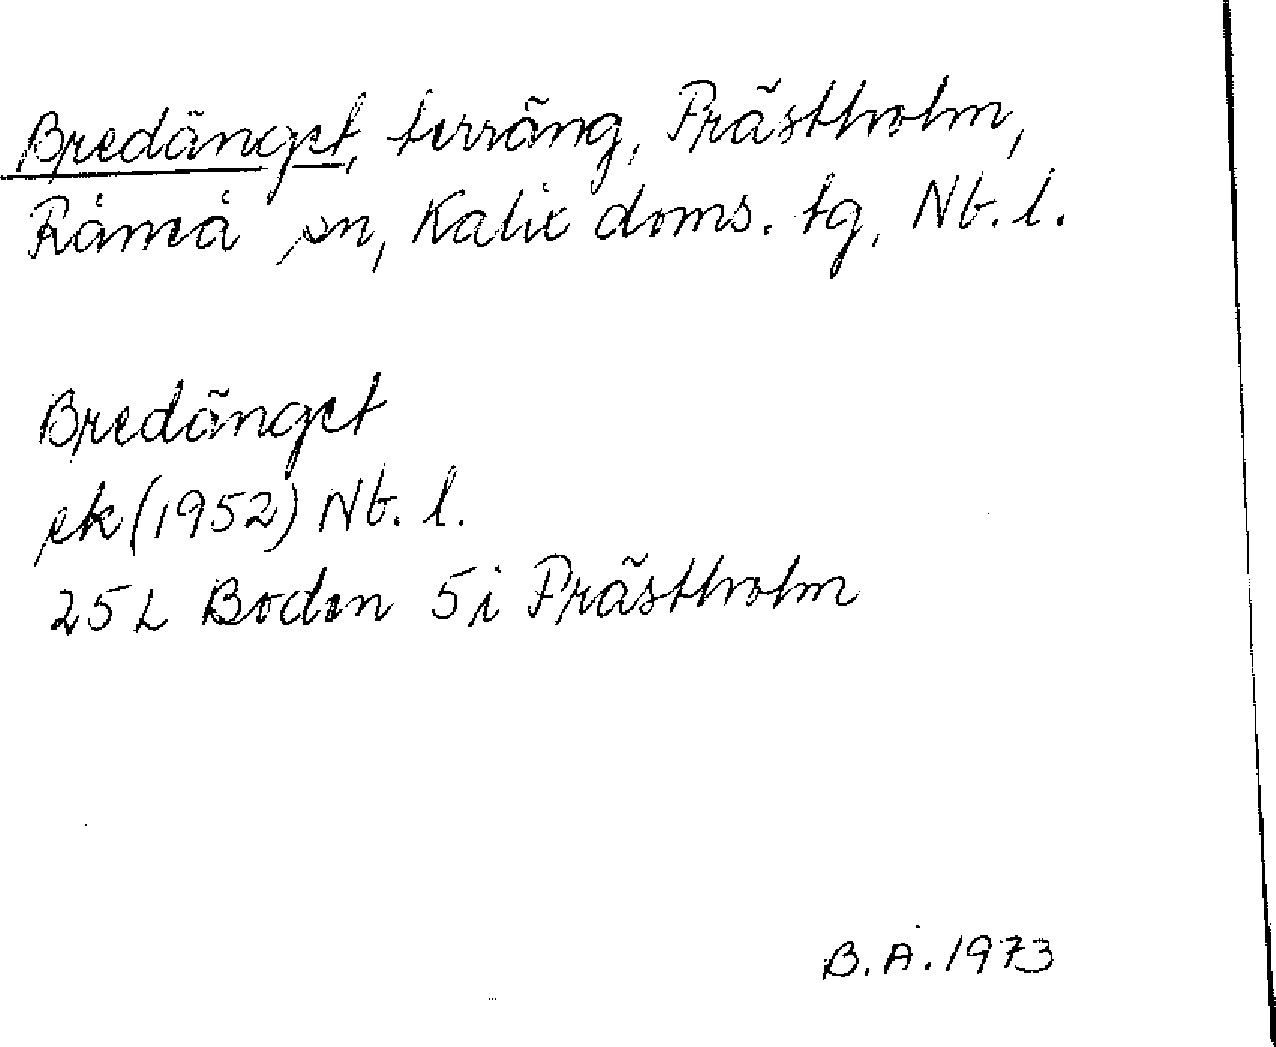 Bredänget, terräng, Prästholm,
Råneå sn, Kalix doms. tg, Nb. l.
Bredänget
ek (1952) Nb. l.
25 L Boden 5i Prästholm
B.Å. 1973